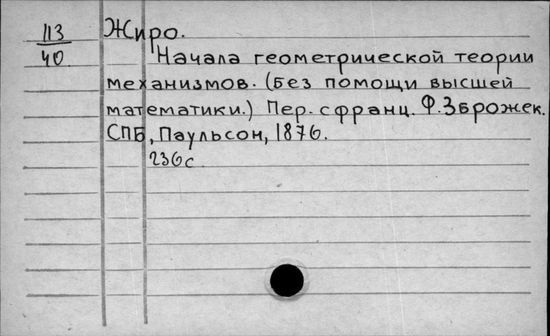 113
40
Жиро.
Начала геометрической теории
механизмов. (Без помощи высшей
математики.) Пер. с франц. Ф. Зброжек.
СПБ, Паульсон, 1876.
236 с